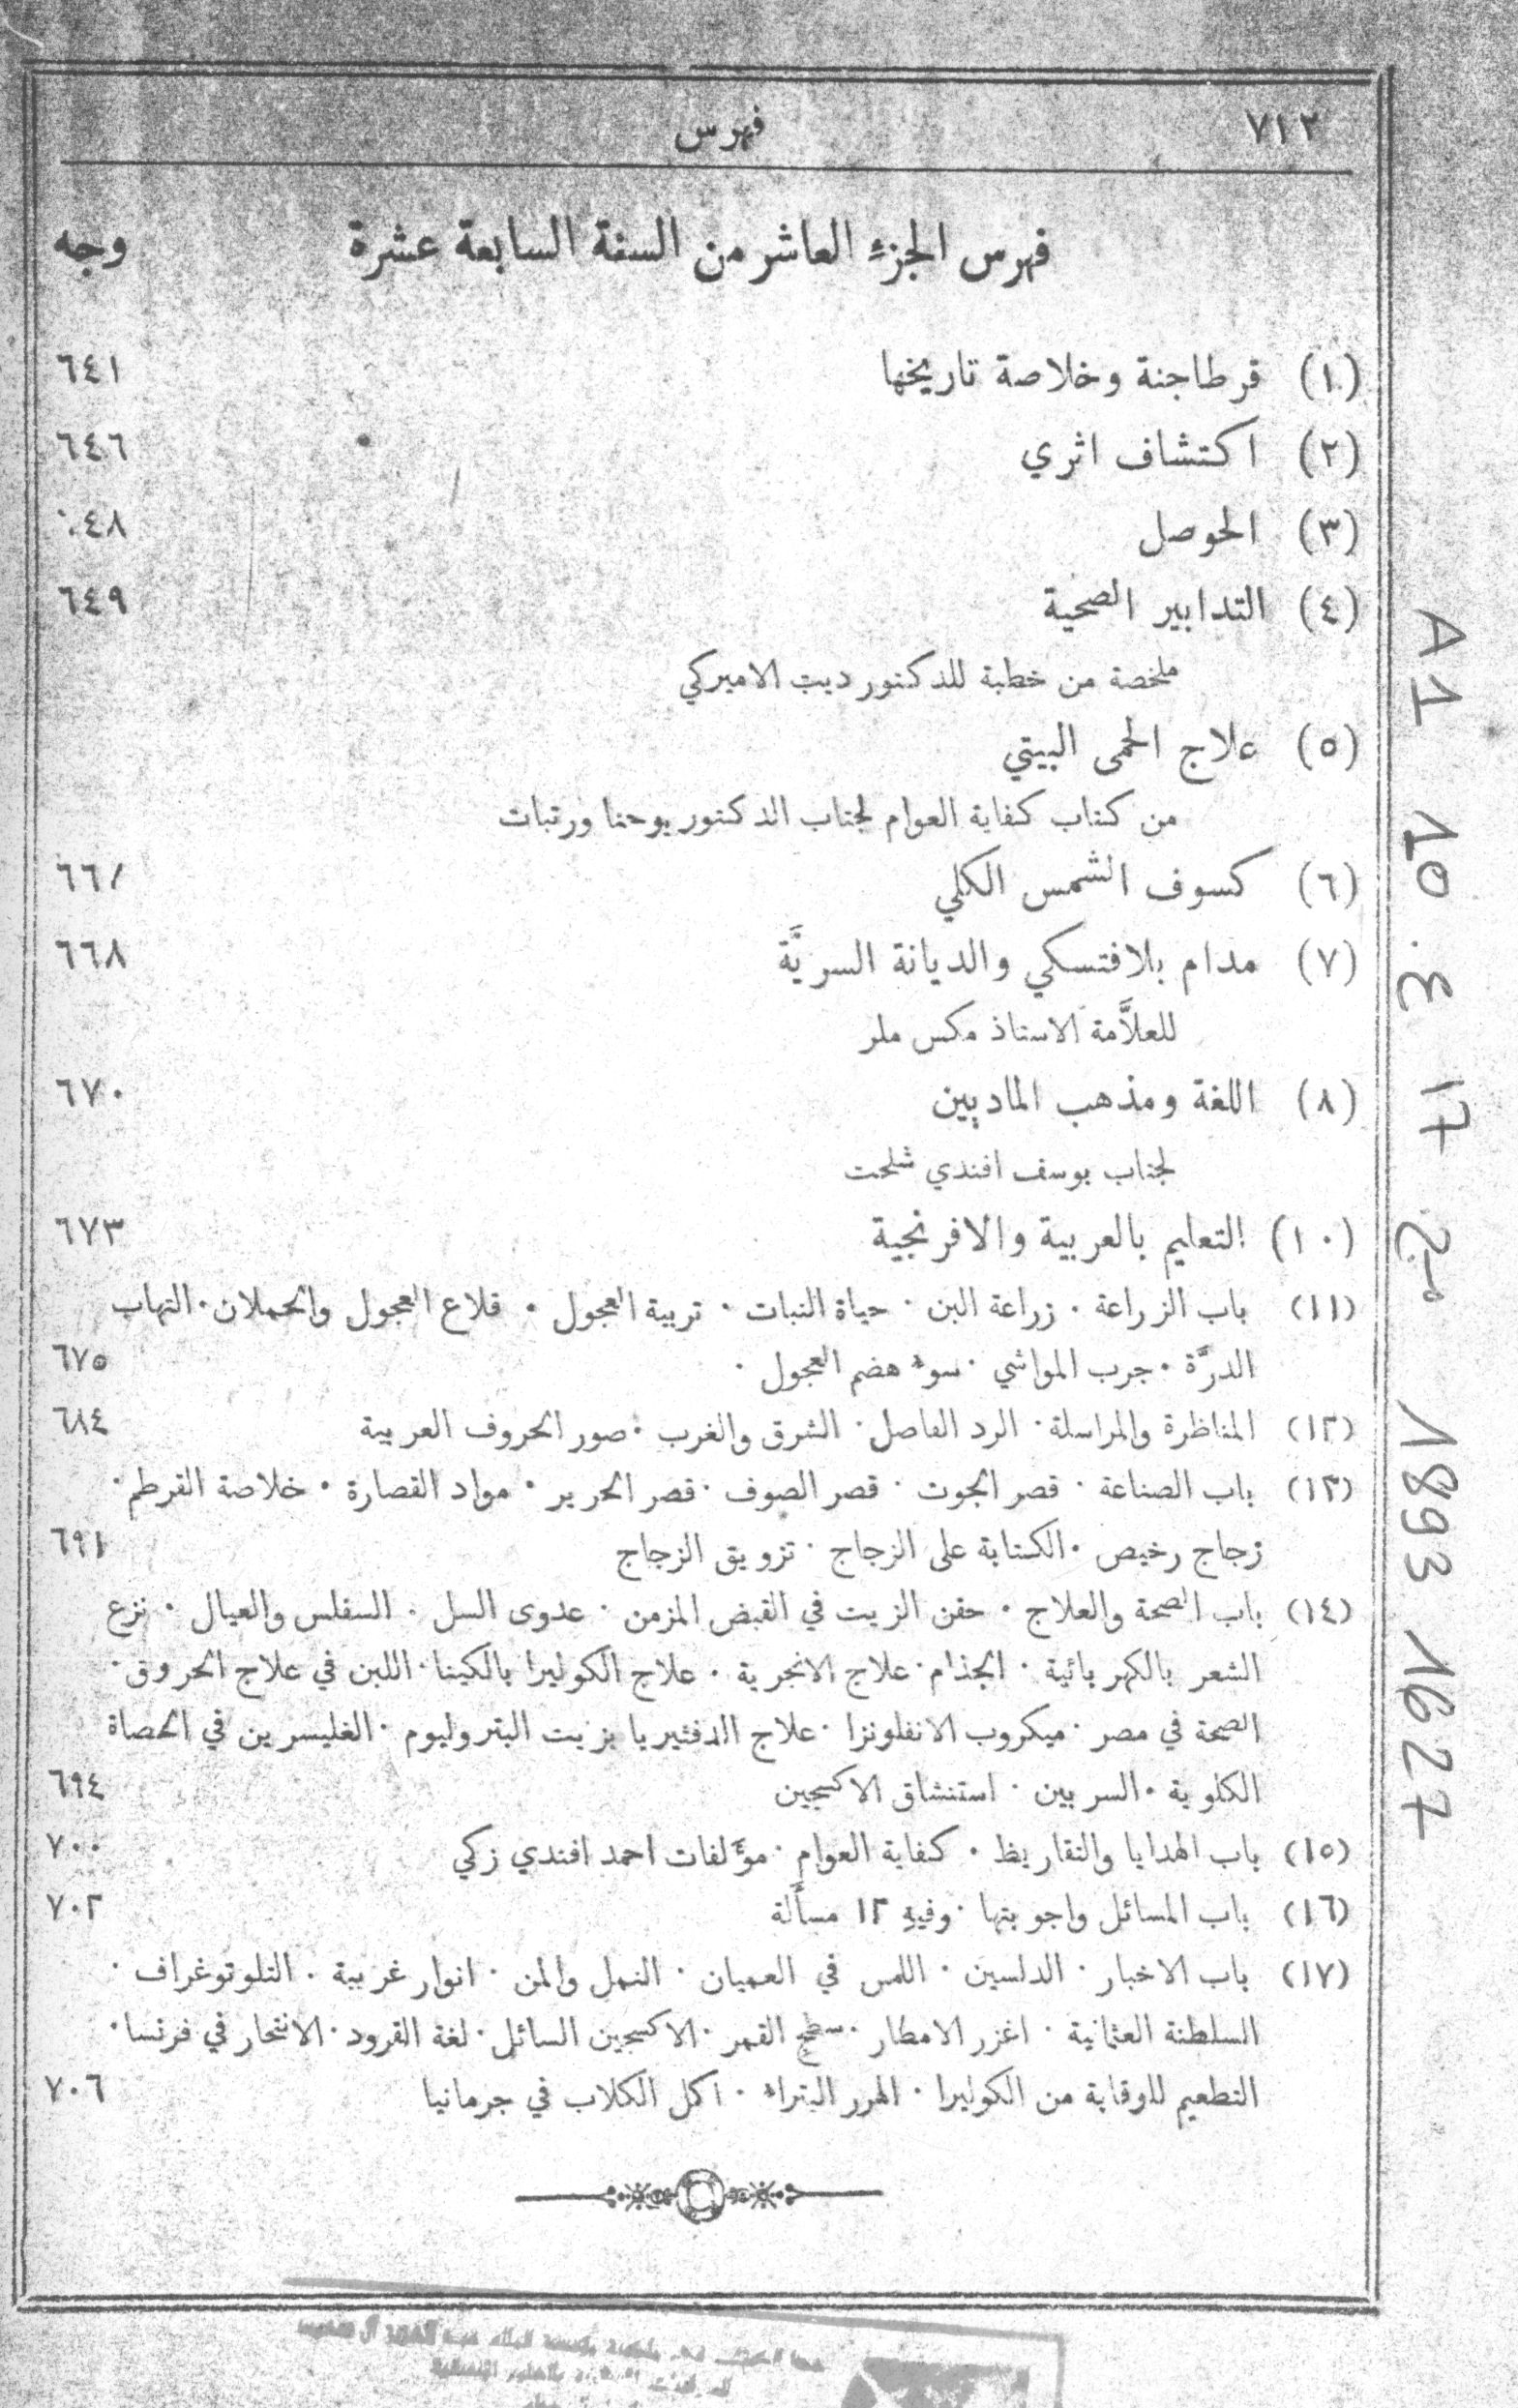 ٧١٢ فهرس
فهرس الجزء العاشر من السنة السابعة عشرة وجه
(١) قرطاجنة وخلاصة تاريخها ٦٤١
(٢) اكتشاف اثري ٦٤٦
(٣) الحوصل ٤٨
(٤) التدابير الصحية ٦٤٩
ملخصة من خطبة للدكتور ديت الاميركي
(٥) علاج الحمى البيتي
من كتاب كفاية العوام لجناب الدكتور يوحنا ورتبات
(٦) كسوف الشمس الكلي ٦٦
(٧) مدام بلافتسكي والديانة السريَّة ٦٦٨
للعلاَّمة الاستاذ مكس ملر
(٨) اللغة ومذهب الماديين ٦٧٠
لجناب يوسف افندي شلحت
(١٠) التعليم بالعربية والافرنجية ٦٧٣
(١١) باب الزراعة · زراعة البن · حياة النبات · تربية العجول · قلاع العجول والحملان · التهاب
الدرَّة · جرب المواشي · سوء هضم العجول · ٦٧٥
(١٢) المناظرة والمراسلة · الرد الفاصل · الشرق والغرب · صور الحروف العربية ٦٨٤
(١٣) باب الصناعة · قصر الجوت · قصر الصوف · قصر الحرير · مواد القصارة · خلاصة القرطم ·
زجاج رخيص · الكتابة على الزجاج · تزويق الزجاج ٦٩١
(١٤) باب الصحة والعلاج · حقن الزيت في القبض المزمن · عدوى السل · السفلس والعيال · نزع
الشعر بالكهربائية · الجذام · علاج الانجرية · علاج الكوليرا بالكينا · اللبن في علاج الحروق ·
الصحة في مصر · ميكروب الانفلونزا · علاج الدفثيريا بزيت البتروليوم · الغليسرين في الحصاة
الكلوية · السربين · استنشاق الاكسجين ٦٩٤
(١٥) باب الهدايا والتقاريظ · كفاية العوام · مؤلفات احمد افندي زكي ٧٠٠
(١٦) باب المسائل واجوبتها · وفيهِ ١٢ مسأَلة ٧٠٢
(١٧) باب الاخبار · الدلسين · اللمس في العميان · النمل والمن · انوار غريبة · التلوتوغراف ·
السلطنة العثمانية · اغزر الامطار · سطح القمر · الاكسجين السائل · لغة القرود · الانتحار في فرنسا ·
التطعيم للوقاية من الكوليرا · الهرر البتراء · اكل الكلاب في جرمانيا ٧٠٦
A1 10 .ع 17 مج 1893 1627